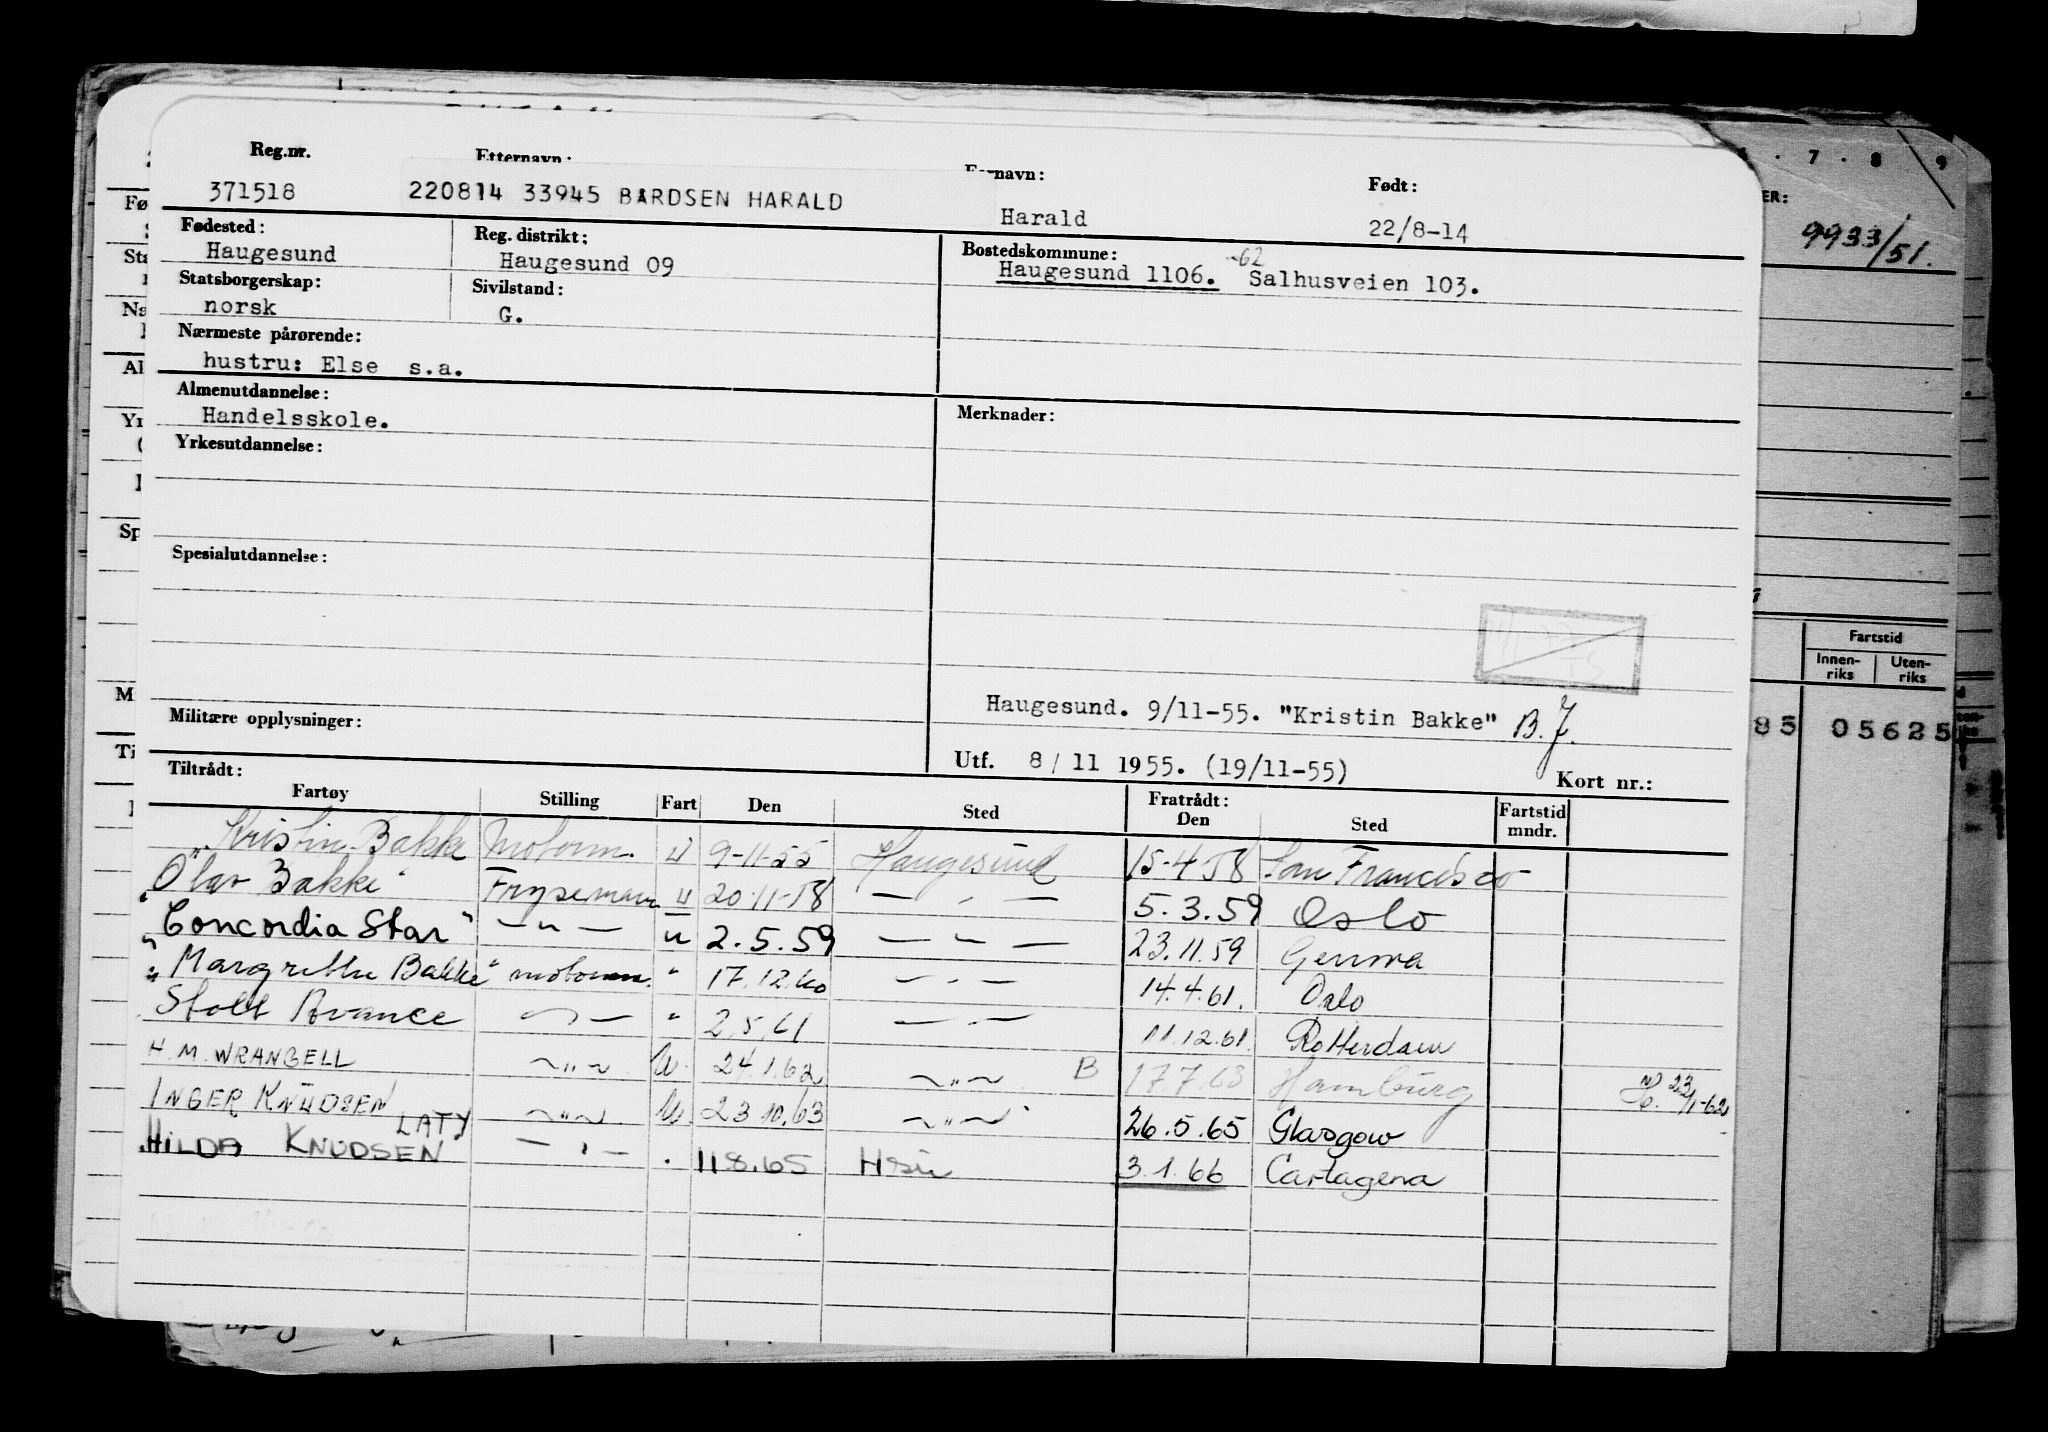 Reg.nr. Etternavn: navn: Født:
371518 220814 33945 BARDSEN HARALD Harald 22/8-14
Fødested: Reg. distrikt: Bostedskommune:
Haugesund Haugesund 09 Haugesund 1106. -62 Salhusveien 103.
Statsborgerskap: Sivilstand:
norsk G.
Nærmeste pårørende:
hustru: Else s.a.
Almenutdannelse: Merknader:
Handelsskole.
Yrkesutdannelse:
Spesialutdannelse:
Haugesund. 9/11-55. "Kristin Bakke" B.J.
Militære opplysninger:
Utf. 8/11 1955. (19/11-55) Kort nr.:
Tiltrådt: Fratrådt:
Fartøy Stilling Fart Den Sted Den Sted Fartstid mndr.
"Kristin Bakke Motorm. U 9-11-55 Haugesund 15-4-58 San Francisco
"Olav Bakke" Frysemann U 20-11-58 — " — 5.3.59 Oslo
"Concordia Star" — " — U 2.5.59 — " — 23.11.59 Genova
"Margrethe Bakke" motorm. " 17.12.60 — " — 14.4.61. Oslo
Stolt Avance — " — " 2.5.61 — " — 11.12.61. Rotterdam
H. M. WRANGELL — " — U. 24.1.62 — " — B 17.7.63 Hamburg 23/1-62
INGER KNUDSEN — " — U. 23.10.63 — " — 26.5.65 Glasgow
LATY
HILDA KNUDSEN — " — . 11.8.65 3.1.66 Cartagena
7 · 8 9
ER:
9933/51.
Fartstid
Innen-riks Uten-riks
85 05625